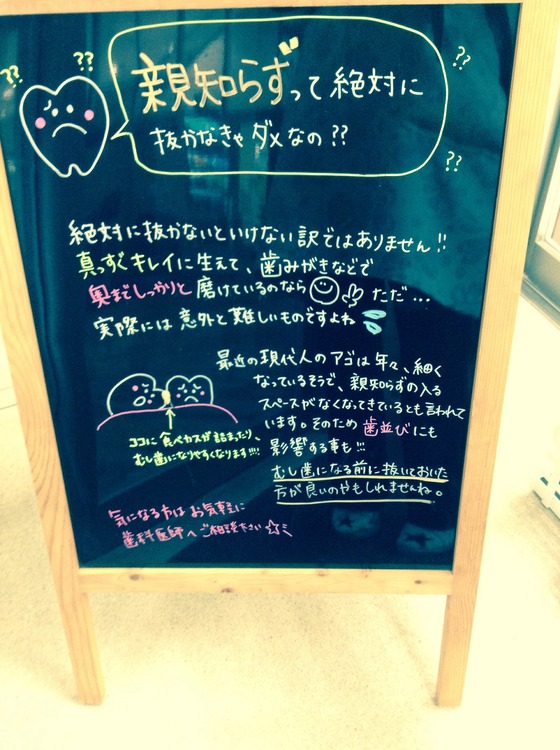 親知らずって絶対に
抜かなきゃダメなの??
??
??
??
??
絶対に抜かないといけない訳ではありません!!
真っすぐキレイに生えて、歯みがきなどで
奥までしっかりと磨けているのなら ただ…
実際には意外と難しいものですよね
最近の現代人のアゴは年々、細く
なっているそうで、親知らずの入る
スペースがなくなってきているとも言われて
います。そのため歯並びにも
影響する事も!!!
むし歯になる前に抜いておいた
方が良いのやもしれませんね。
ココに食べカスが詰まったり、
むし歯になりやすくなります!!!!
気になる方はお気軽に
歯科医師へご相談下さい☆ミ